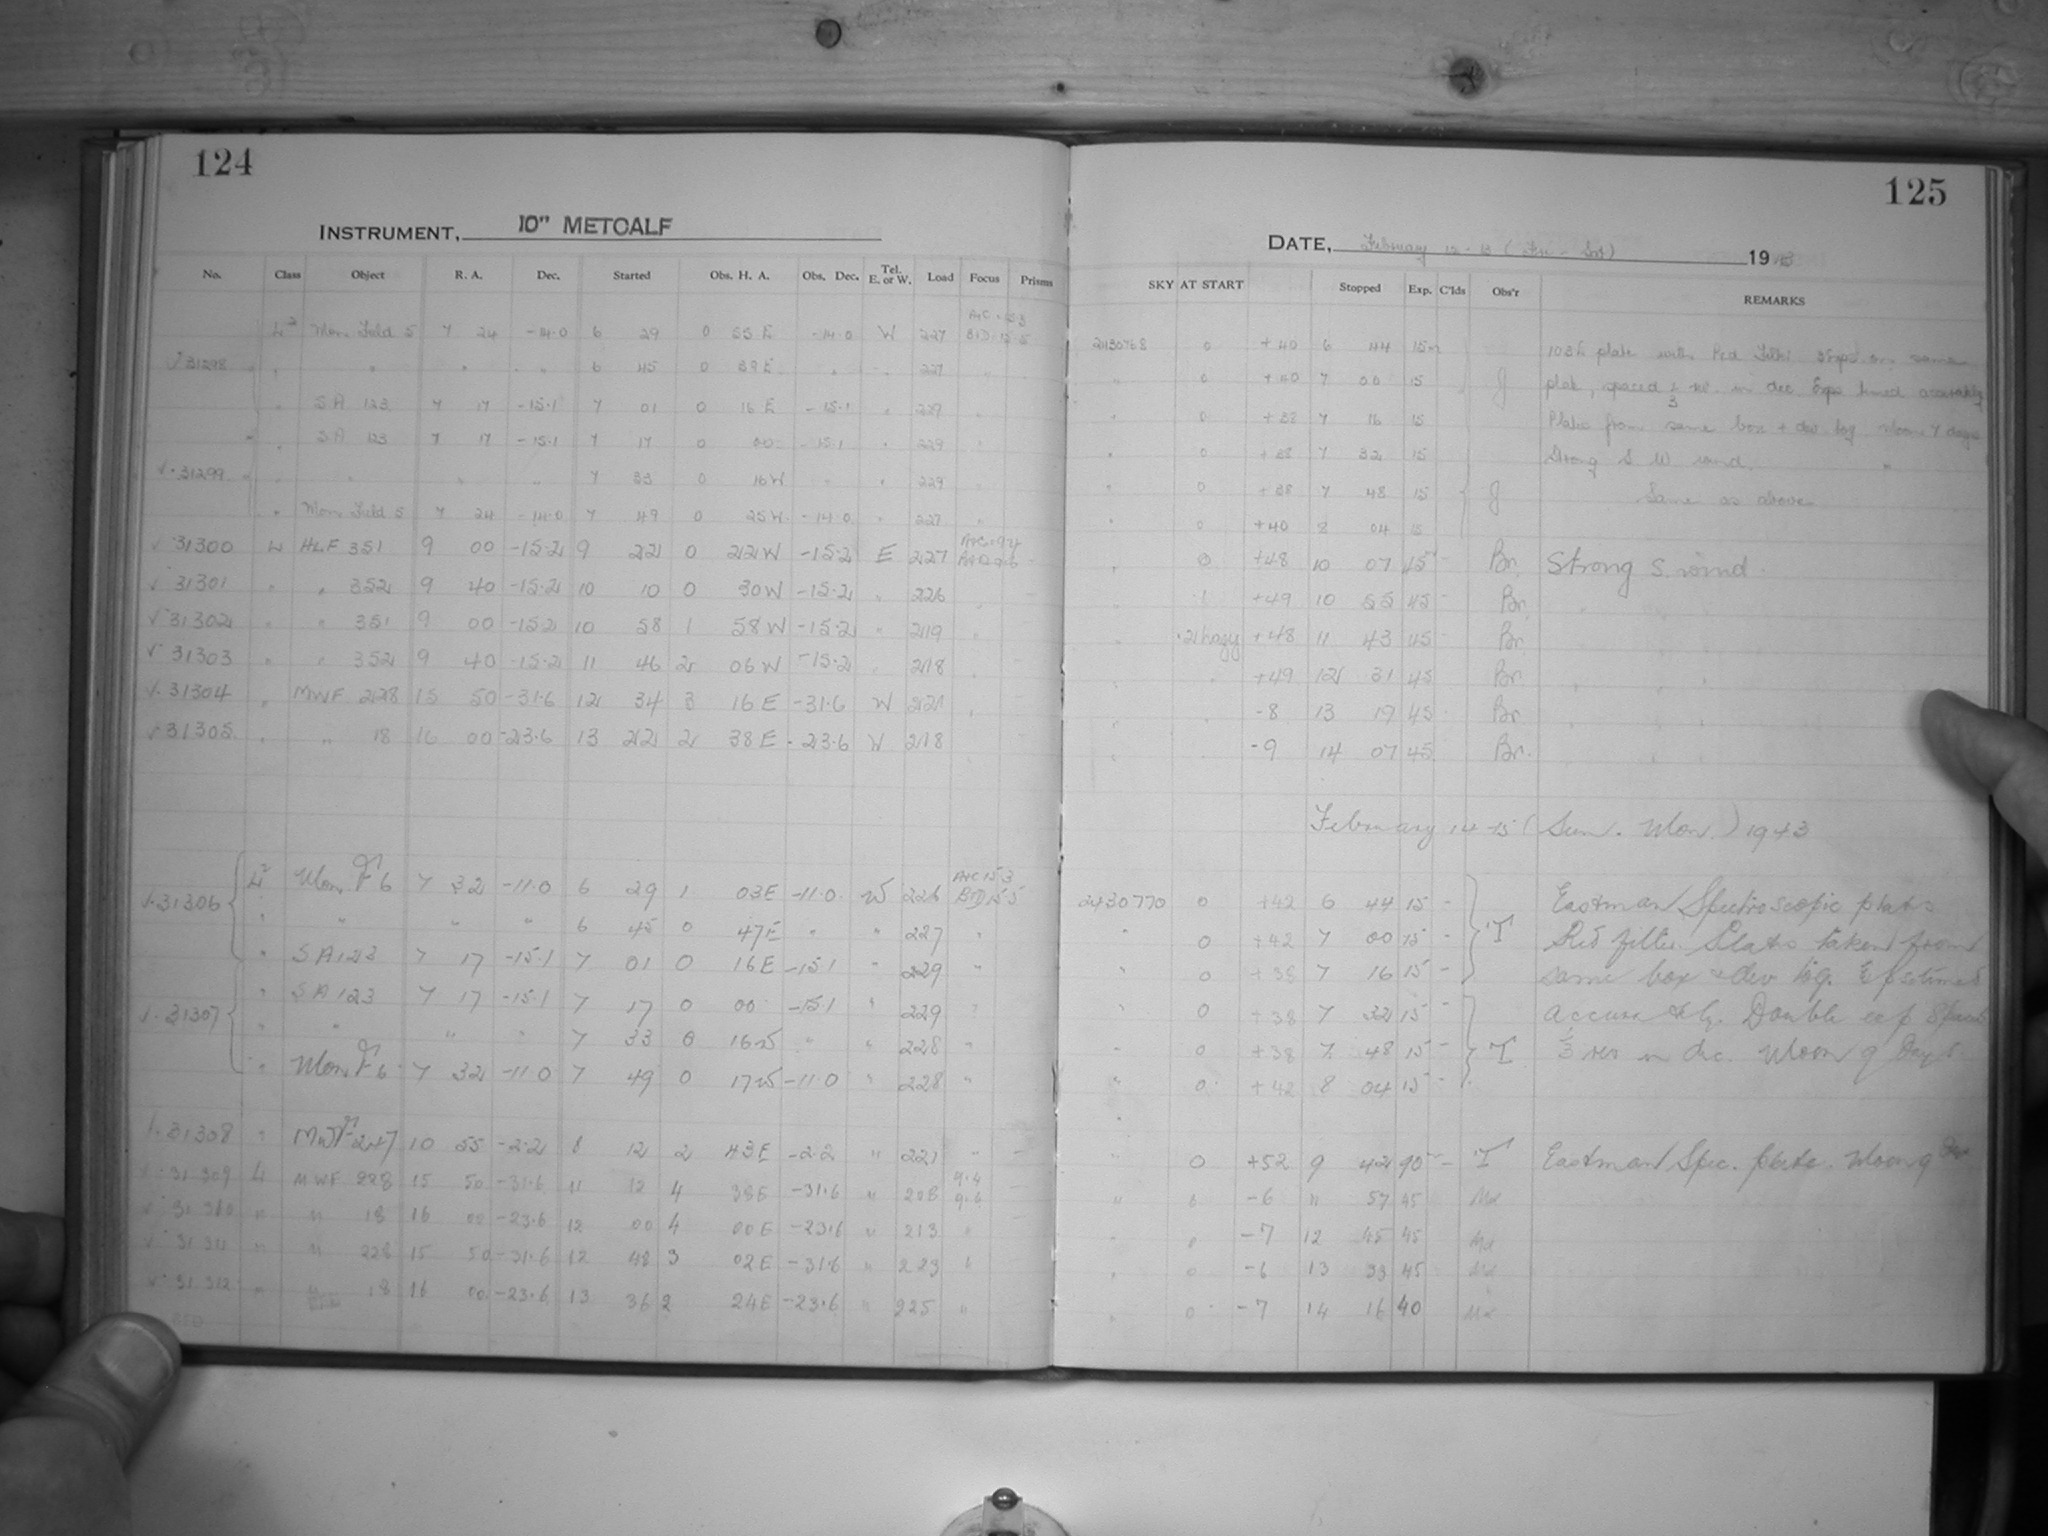 124
INSTRUMENT, 10" METCALF
No. Class Object R. A. Dec. Started Obs. H. A. Obs. Dec. Tel. E. or W. Load Focus Prisms
L2 Mon Field 5 7 24 -14.0 6 29 0 55 E -14.0 W 227
✓31298 " " " " 6 45 0 39 E " " 227
" SA 123 7 17 -15.1 7 01 0 16 E -15.1 " 229
" SA 123 7 17 -15.1 7 17 0 00 -15.1 " 229
✓31299 " " " " 7 33 0 16 W " " 229
" Mon Field 5 7 24 -14.0 7 49 0 25 W -14.0 " 227
✓31300 L HLF 351 9 00 -15.2 9 22 0 22 W -15.2 E 227
✓31301 " " 352 9 40 -15.2 10 10 0 30 W -15.2 " 226
✓31302 " " 351 9 00 -15.2 10 58 1 58 W -15.2 " 219
✓31303 " " 352 9 40 -15.2 11 46 2 06 W -15.2 " 218
✓31304 " MWF 228 15 50 -31.6 12 34 3 16 E -31.6 W 221
✓31305 " " 18 16 00 -23.6 13 22 2 38 E -23.6 W 218
✓31306 L2 Mon F 6 7 32 -11.0 6 29 1 03 E -11.0 W 226
" " " " 6 45 0 47 E " " 227 "
" SA 123 7 17 -15.1 7 01 0 16 E -15.1 " 229 "
✓31307 " SA 123 7 17 -15.1 7 17 0 00 -15.1 " 229 "
" " " " 7 33 0 16 W " " 228 "
" Mon F 6 7 32 -11.0 7 49 0 17 W -11.0 " 228 "
✓31308 " MWF 247 10 55 -2.2 8 12 2 43 E -2.2 " 221 "
✓31309 L MWF 228 15 50 -31.6 11 12 4 38 E -31.6 " 208 9.4 9.6
✓31310 " " 18 16 00 -23.6 12 00 4 00 E -23.6 " 213 "
✓31311 " " 228 15 50 -31.6 12 48 3 02 E -31.6 " 223 "
✓31312 " " 18 16 00 -23.6 13 36 2 24 E -23.6 " 225 "
125
DATE, February 12-13 (Fri - Sat) 1943
SKY AT START Stopped Exp. C'lds Obs'r REMARKS
2430768 0 +40 6 44 15m plate with Red Filter 3 Exps on same
" 0 +40 7 00 15 J plate, spaced 1/3 in dec Exps timed accurately
" 0 +38 7 16 15 Plates from same box + dev tog Moon 7 days
" 0 +38 7 32 15 Strong S W wind "
" 0 +38 7 48 15 J Same as above
" 0 +40 8 04 15
" 0 +48 10 07 45 Br. Strong S. wind
" 1 +49 10 55 45 Br.
" 2 hazy +48 11 43 45 Br.
" " +49 12 31 45 Br.
" " -8 13 19 45 Br.
" -9 14 07 45 Br.
February 14-15 (Sun. Mon.) 1943
2430770 0 +42 6 44 15 - Eastman Spectroscopic plates
" 0 +42 7 00 15 - T Red filter. Plates taken from
" 0 +38 7 16 15 - same box & dev tog. Exps timed
" 0 +38 7 32 15 - accurately. Double exp
" 0 +38 7 48 15 - T 1/3 in dec. Moon 9 Days
" 0 +42 8 04 15 -
" 0 +52 9 42 90 - T Eastman Spec. plate. Moon 9
" 0 -6 11 57 45
" 0 -7 12 45 45
" 0 -6 13 33 45
" 0 -7 14 16 40